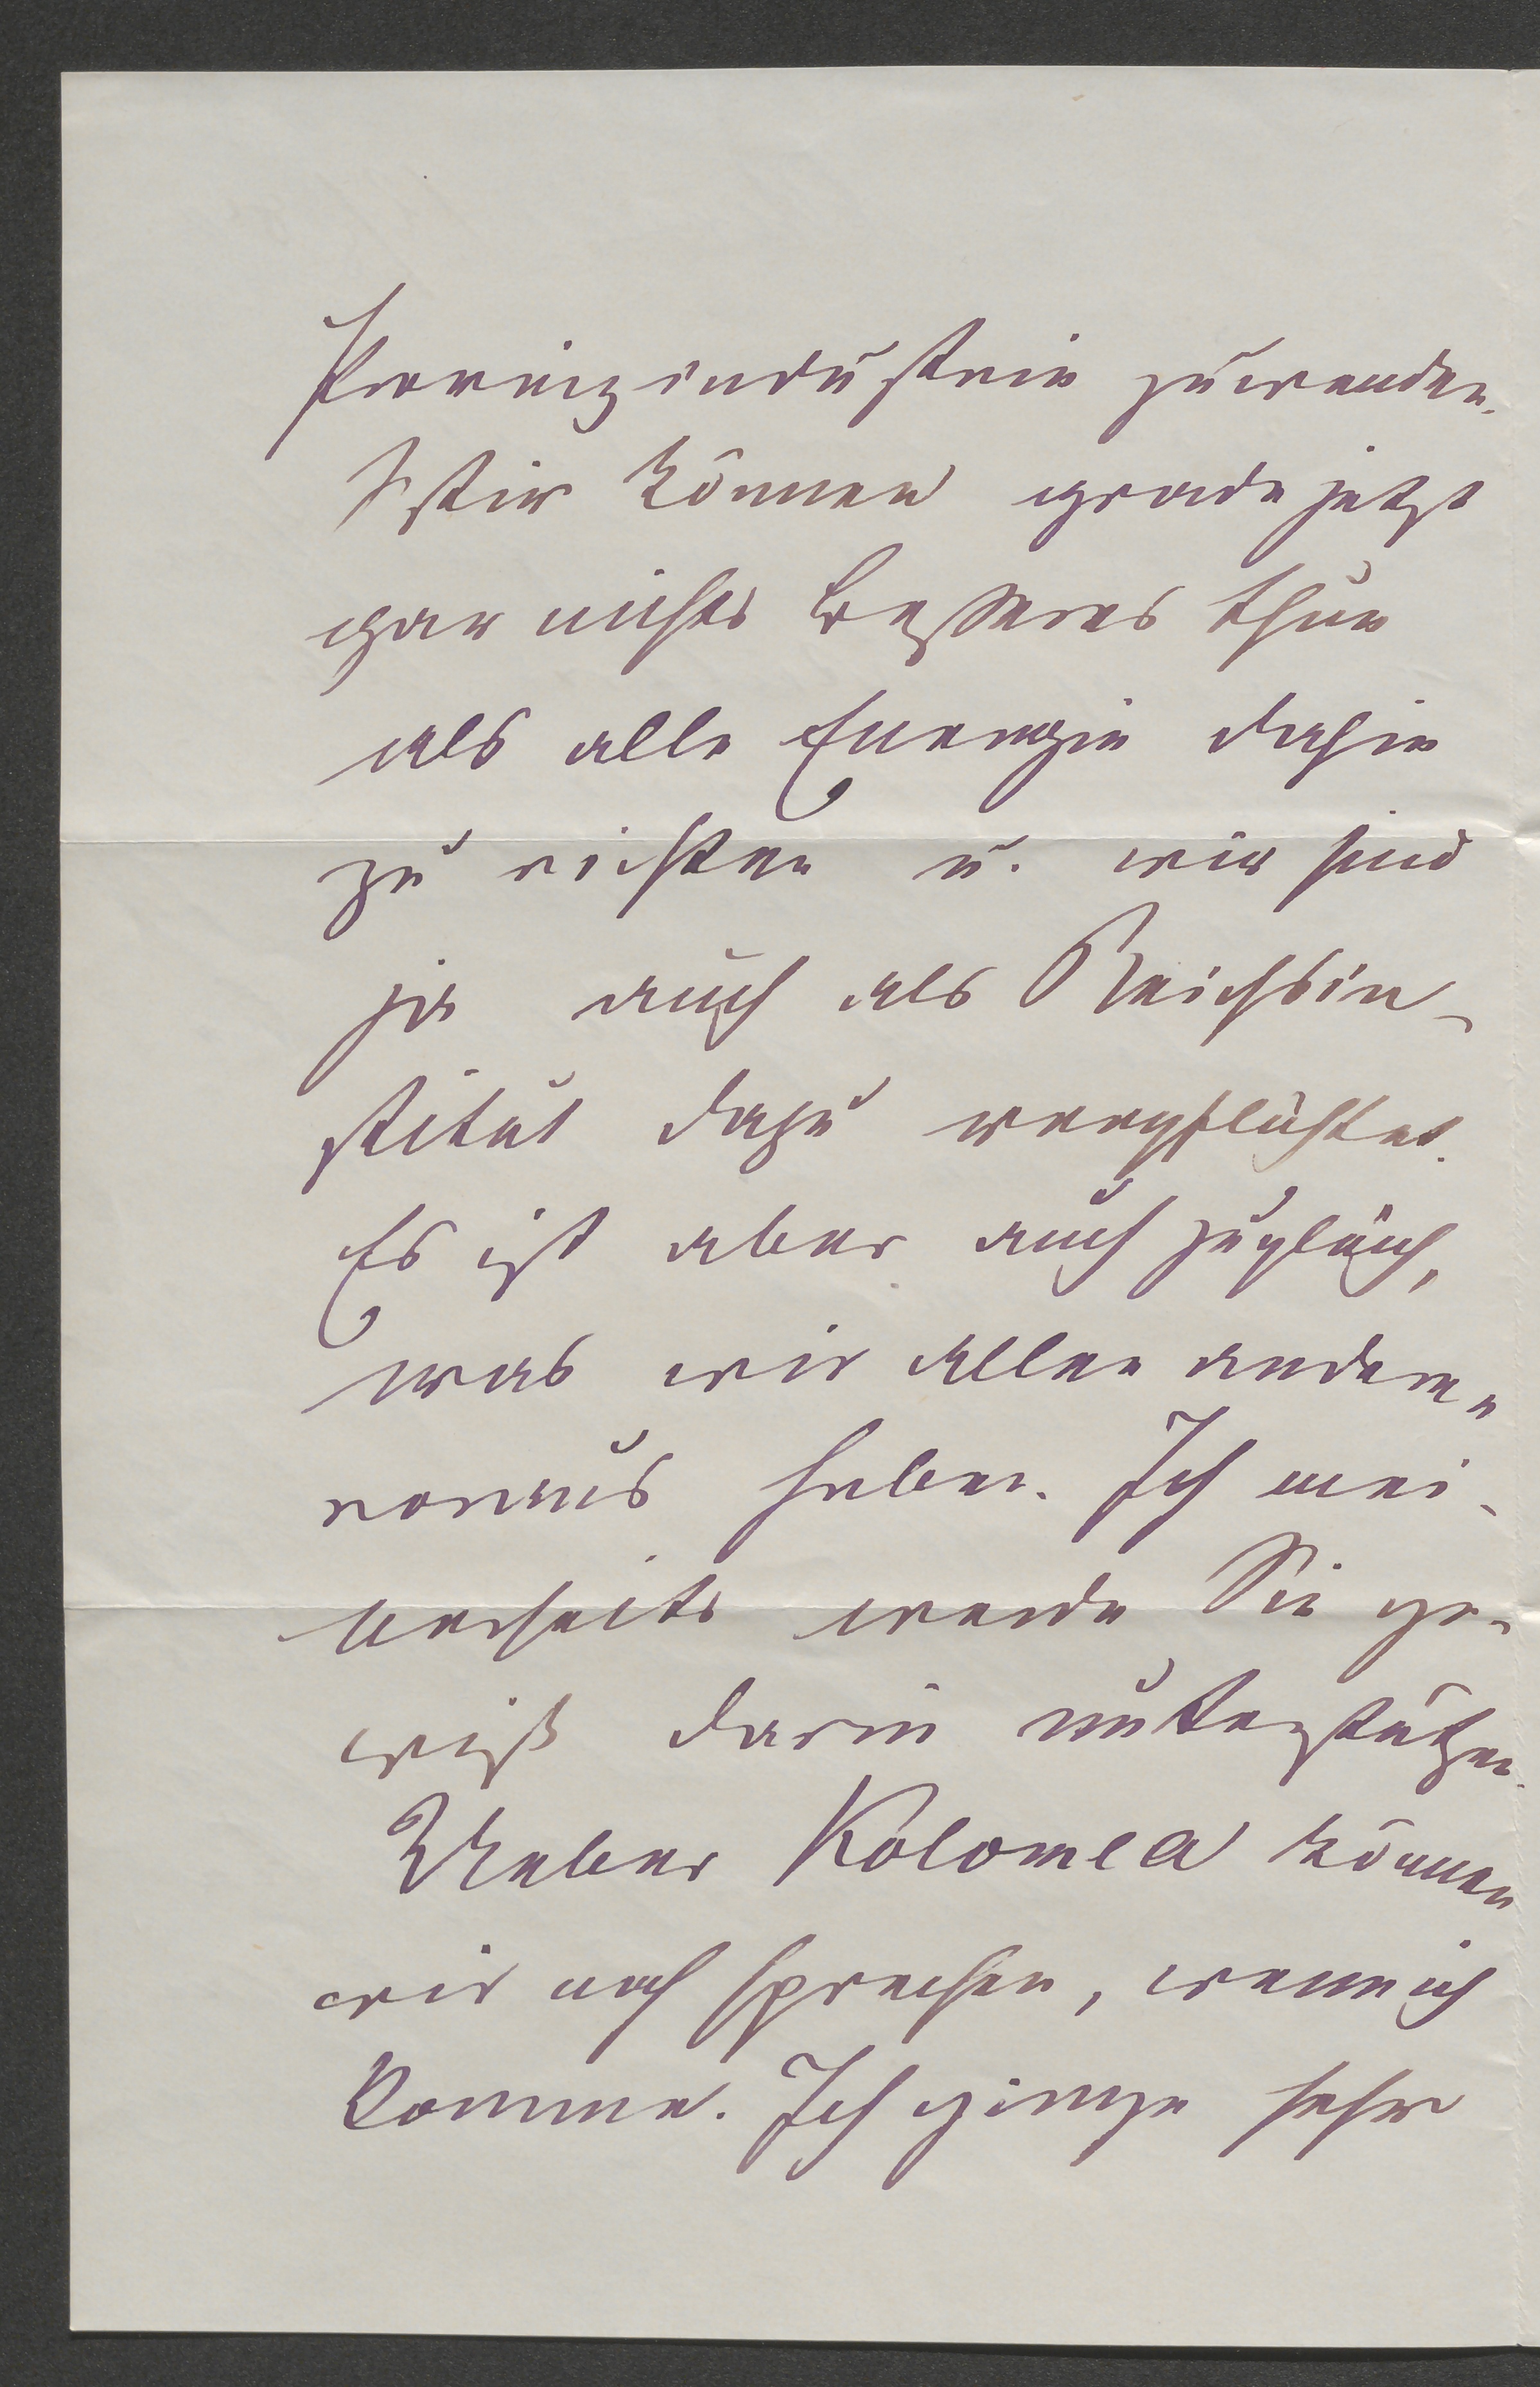 Provinzindustrie zuwenden.
Wir können grade jetzt
gar nichts besseres thun
als alle Energie dahin
zu richten u. wir sind
ja auch als Reichsin-
stitut dazu verpflichtet.
Es ist aber auch zugleich,
was wir allen anderen
voraus haben. Ich mei-
nerseits werde Sie ge-
wiß darin unterstützen.
Ueber Kolomea können
wir noch sprechen, wenn ich
komme. Ich ginge sehr